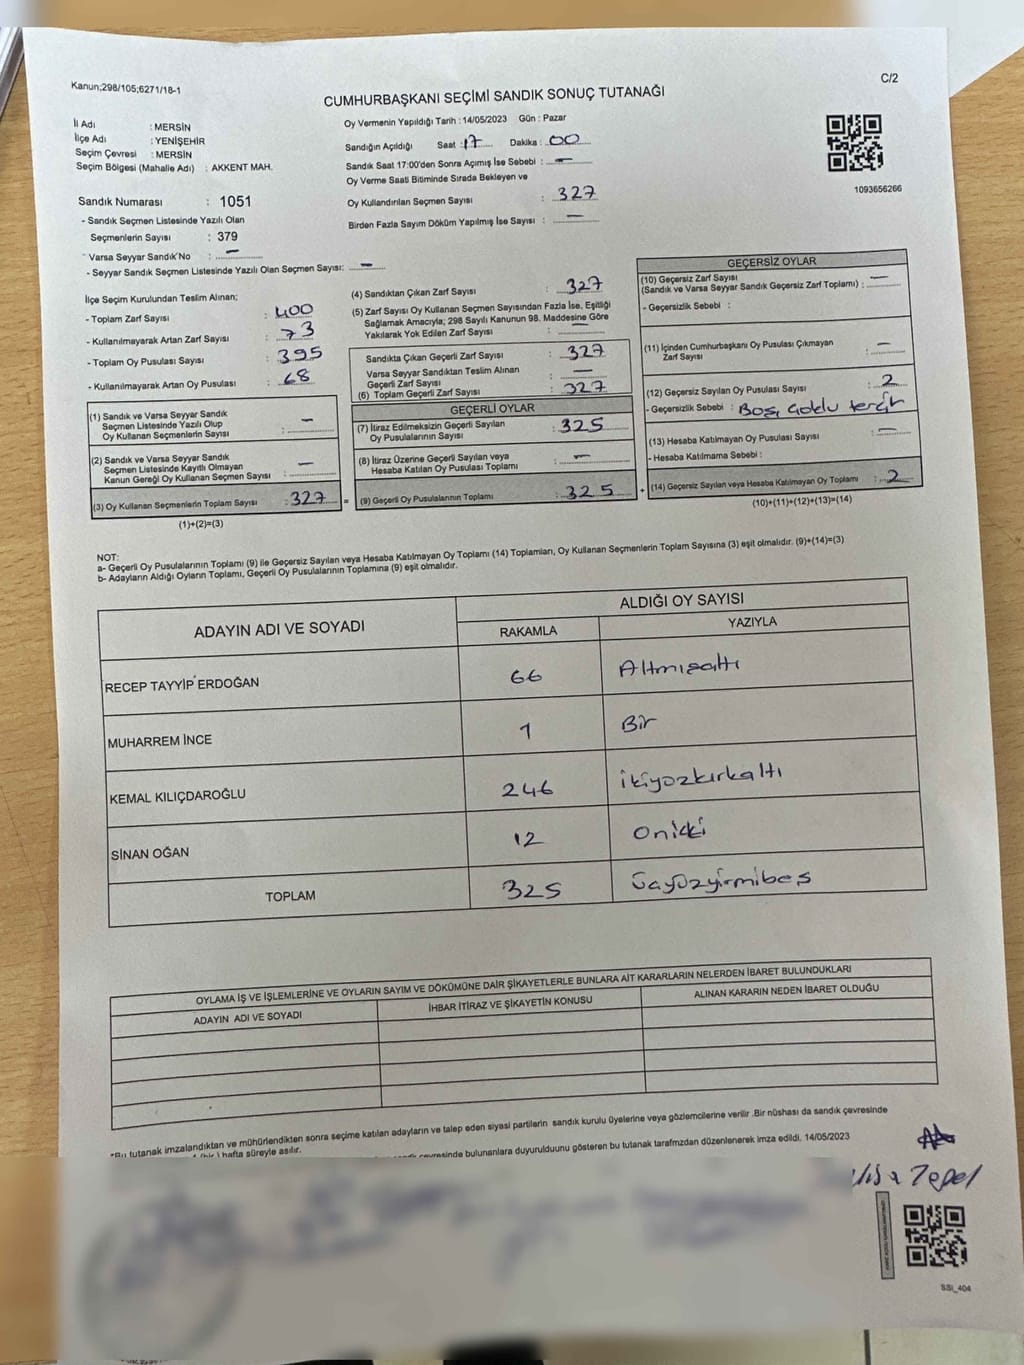 Kanun;298/105;6271/18-1
C/2
CUMHURBAŞKANI SEÇİMİ SANDIK SONUÇ TUTANAĞI
İl Adı : MERSİN
İlçe Adı : YENİŞEHİR
Seçim Çevresi : MERSİN
Seçim Bölgesi (Mahalle Adı) : AKKENT MAH.
Sandık Numarası : 1051
- Sandık Seçmen Listesinde Yazılı Olan
Seçmenlerin Sayısı : 379
- Varsa Seyyar Sandık No : —
- Seyyar Sandık Seçmen Listesinde Yazılı Olan Seçmen Sayısı: —
Oy Vermenin Yapıldığı Tarih : 14/05/2023 Gün : Pazar
Sandığın Açıldığı Saat : 17 Dakika : 00
Sandık Saat 17:00'den Sonra Açımış İse Sebebi : —
Oy Verme Saati Bitiminde Sırada Bekleyen ve
Oy Kullandırılan Seçmen Sayısı : 327
Birden Fazla Sayım Döküm Yapılmış İse Sayısı : —
1093656266
İlçe Seçim Kurulundan Teslim Alınan;
- Toplam Zarf Sayısı : 400
- Kullanılmayarak Artan Zarf Sayısı : 73
- Toplam Oy Pusulası Sayısı : 395
- Kullanılmayarak Artan Oy Pusulası : 68
(1) Sandık ve Varsa Seyyar Sandık
Seçmen Listesinde Yazılı Olup
Oy Kullanan Seçmenlerin Sayısı : —
(2) Sandık ve Varsa Seyyar Sandık
Seçmen Listesinde Kayıtlı Olmayan
Kanun Gereği Oy Kullanan Seçmen Sayısı : —
(3) Oy Kullanan Seçmenlerin Toplam Sayısı : 327 =
(1)+(2)=(3)
(4) Sandıktan Çıkan Zarf Sayısı : 327
(5) Zarf Sayısı Oy Kullanan Seçmen Sayısından Fazla İse, Eşitliği
Sağlamak Amacıyla; 298 Sayılı Kanunun 98. Maddesine Göre
Yakılarak Yok Edilen Zarf Sayısı : —
Sandıkta Çıkan Geçerli Zarf Sayısı : 327
Varsa Seyyar Sandıktan Teslim Alınan
Geçerli Zarf Sayısı : —
(6) Toplam Geçerli Zarf Sayısı : 327
GEÇERLİ OYLAR
(7) İtiraz Edilmeksizin Geçerli Sayılan
Oy Pusulalarının Sayısı : 325
(8) İtiraz Üzerine Geçerli Sayılan veya
Hesaba Katılan Oy Pusulası Toplamı : —
(9) Geçerli Oy Pusulalarının Toplamı : 325 +
GEÇERSİZ OYLAR
(10) Geçersiz Zarf Sayısı
(Sandık ve Varsa Seyyar Sandık Geçersiz Zarf Toplamı) : —
- Geçersizlik Sebebi :
(11) İçinden Cumhurbaşkanı Oy Pusulası Çıkmayan
Zarf Sayısı : —
(12) Geçersiz Sayılan Oy Pusulası Sayısı : 2
- Geçersizlik Sebebi : Boş, çoklu tercih
(13) Hesaba Katılmayan Oy Pusulası Sayısı : —
- Hesaba Katılmama Sebebi :
(14) Geçersiz Sayılan veya Hesaba Katılmayan Oy Toplamı : 2
(10)+(11)+(12)+(13)=(14)
NOT:
a- Geçerli Oy Pusulalarının Toplamı (9) ile Geçersiz Sayılan veya Hesaba Katılmayan Oy Toplamı (14) Toplamları, Oy Kullanan Seçmenlerin Toplam Sayısına (3) eşit olmalıdır. (9)+(14)=(3)
b- Adayların Aldığı Oyların Toplamı, Geçerli Oy Pusulalarının Toplamına (9) eşit olmalıdır.
ADAYIN ADI VE SOYADI
ALDIĞI OY SAYISI
RAKAMLA YAZIYLA
RECEP TAYYİP ERDOĞAN 66 Altmışaltı
MUHARREM İNCE 1 Bir
KEMAL KILIÇDAROĞLU 246 ikiyüzkırkaltı
SİNAN OĞAN 12 Oniki
TOPLAM 325 üçyüzyirmibeş
OYLAMA İŞ VE İŞLEMLERİNE VE OYLARIN SAYIM VE DÖKÜMÜNE DAİR ŞİKAYETLERLE BUNLARA AİT KARARLARIN NELERDEN İBARET BULUNDUKLARI
ADAYIN ADI VE SOYADI İHBAR İTİRAZ VE ŞİKAYETİN KONUSU ALINAN KARARIN NEDEN İBARET OLDUĞU
*Bu tutanak imzalandıktan ve mühürlendikten sonra seçime katılan adayların ve talep eden siyasi partilerin sandık kurulu üyelerine veya gözlemcilerine verilir .Bir nüshası da sandık çevresinde
(bir ) hafta süreyle asılır.
çevresinde bulunanlara duyurulduunu gösteren bu tutanak tarafımzdan düzenlenerek imza edildi. 14/05/2023
SSI_404